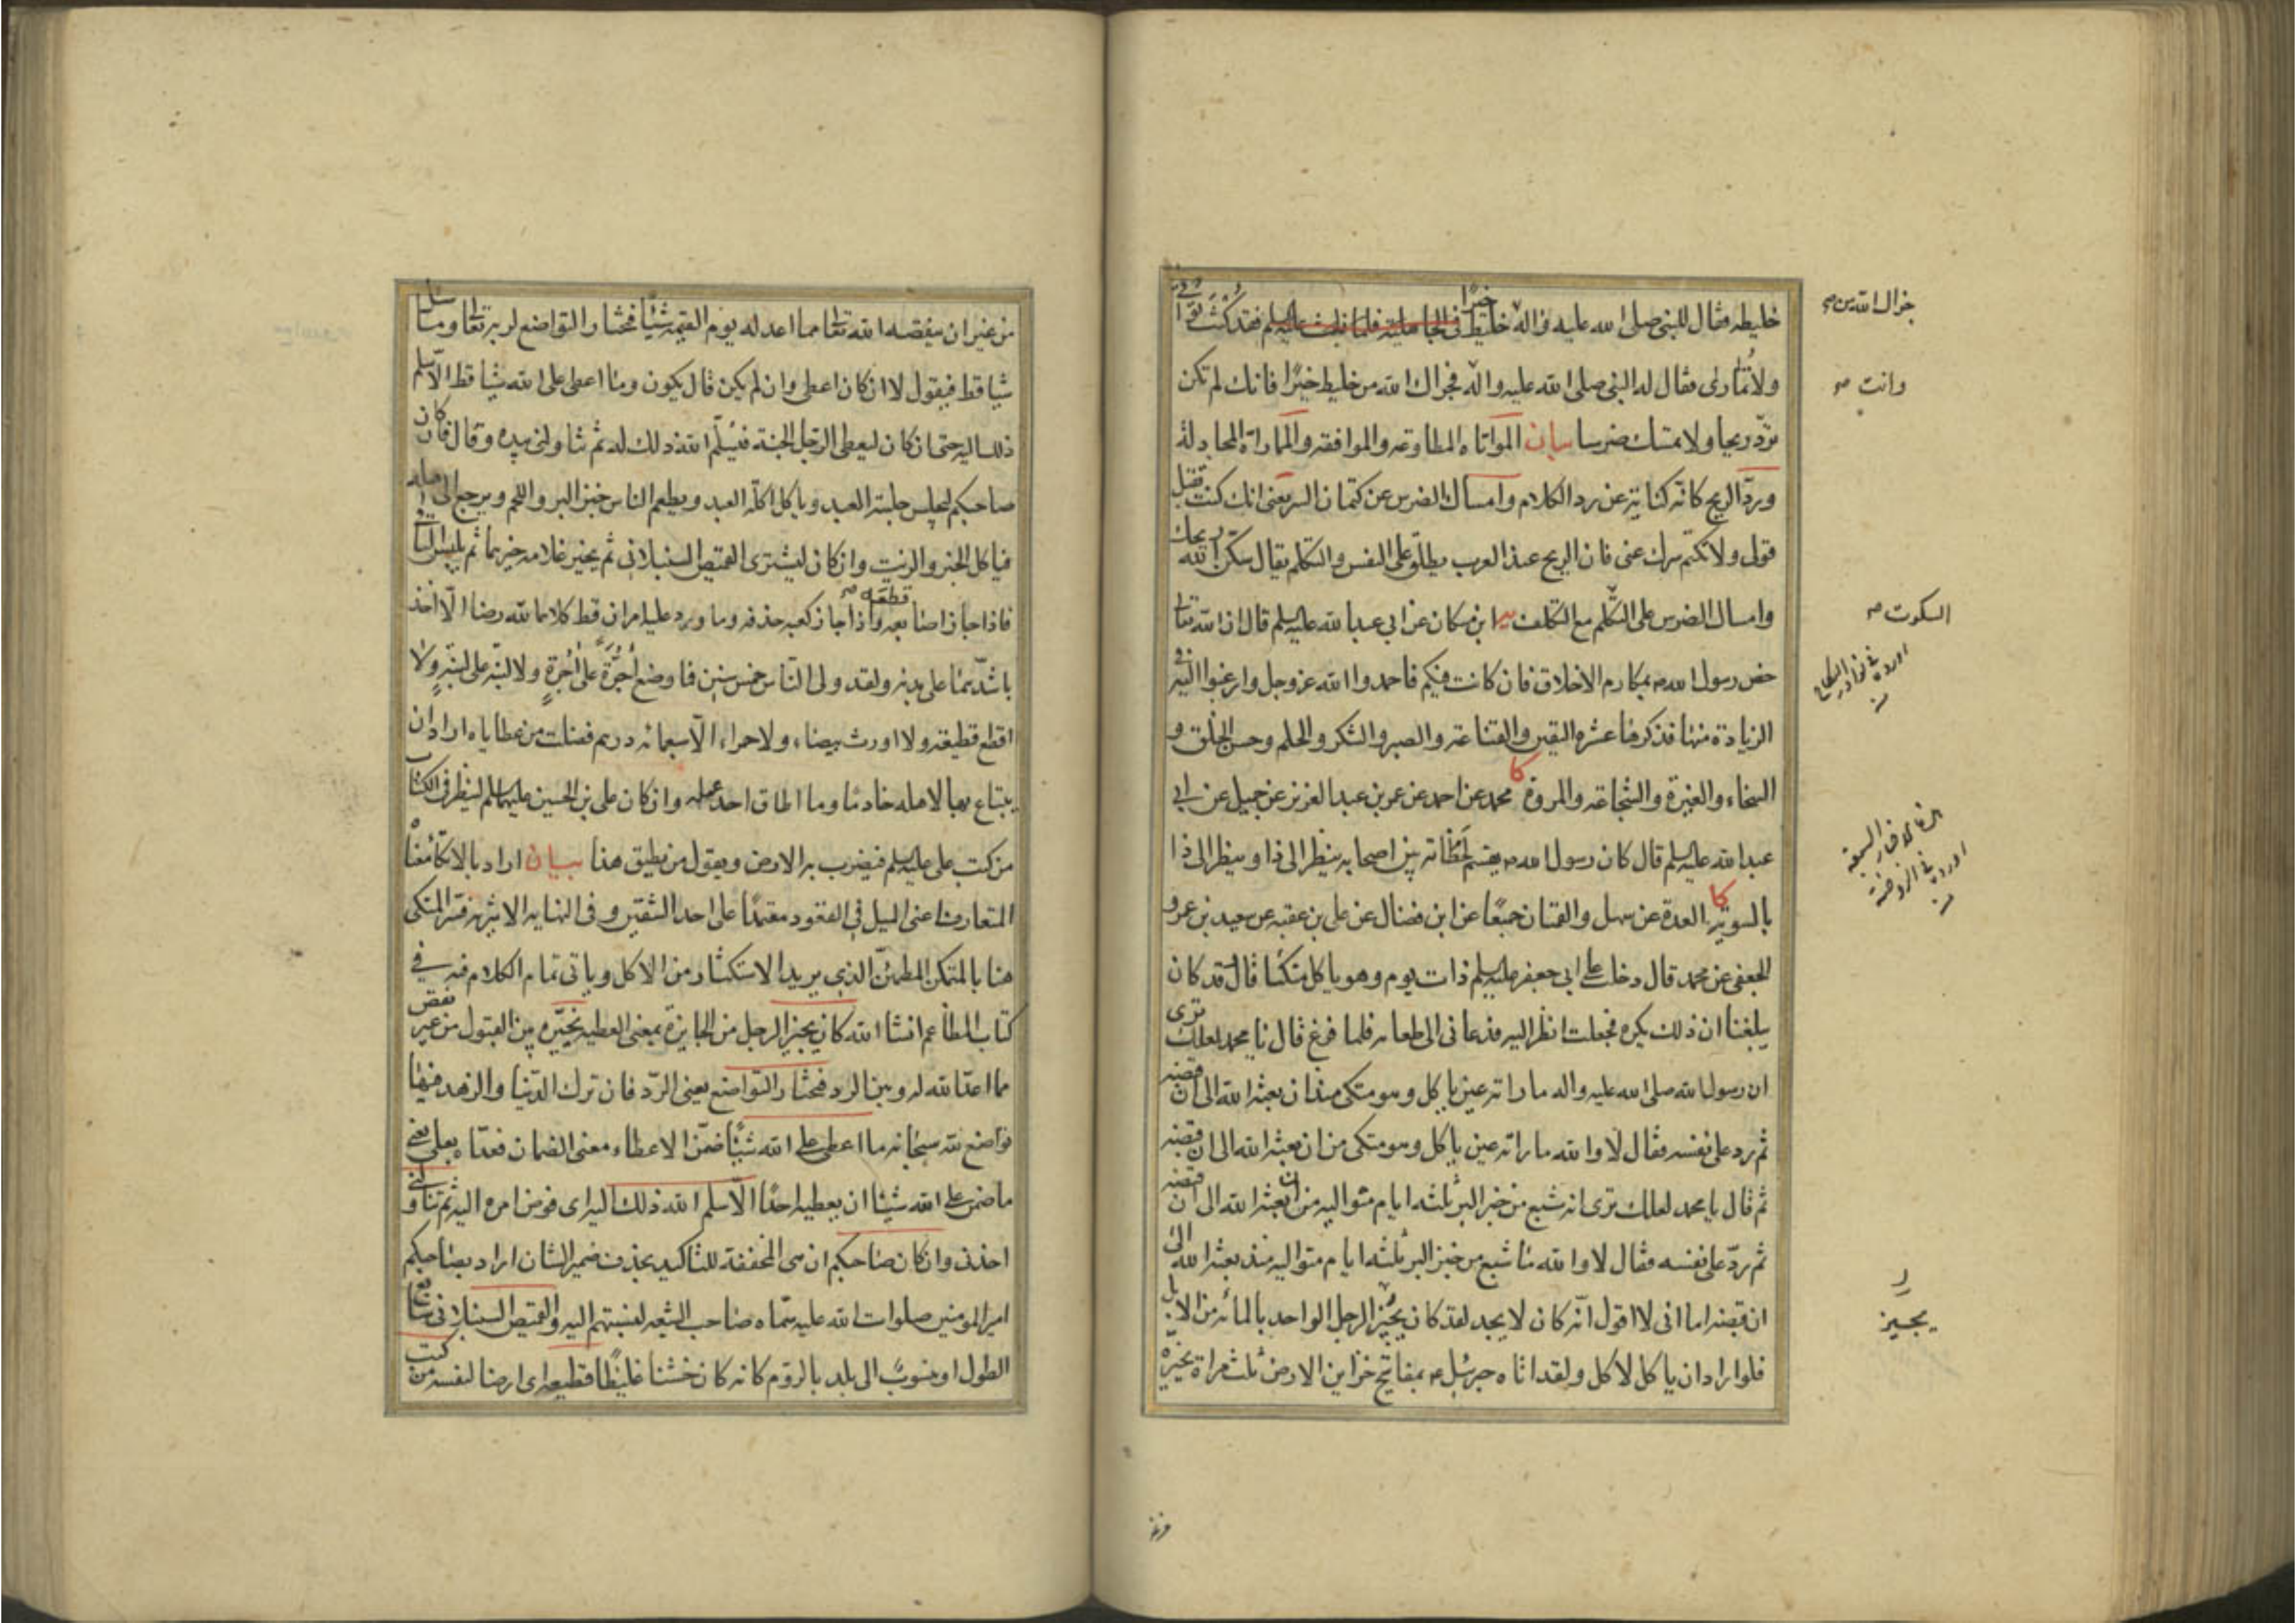 خليطه فقال للنبي صلى الله عليه واله خليط خيرا في الجاهلية فلما فقد كنت تواتى
جزاك الله من
ولا تمارى فقال له النبي صلى الله عليه واله فجزاك الله من خليط خيرا فانك لم تكن
وانت
تردّ ريحا ولا تمسك ضرسا بيان المواتاه المطاوعه والموافقه والمماراة المجادلة
وردّ الريح كانّه كناية عن رد الكلام وامساك الضرس عن كتمان السر يعنى انك كنت تقبل
قولى ولا تكتم سرك عنى فان الريح عند العرب يطلق على النفس والتكلم يقال سكّن الله ريحك
وامساك الضرس على التكلم مع التكلف ابن مسكان عن ابي عبد الله عليه السلم قال ان الله تعالى
السكوت
خص رسول الله بمكارم الاخلاق فان كانت فيكم فاحمدوا الله عز وجل وارغبوا اليه في
الزيادة منها فذكرها عشره اليقين والقناعة والصبر والشكر والحلم وحسن الخلق و
السخاء والغيرة والشجاعة والمروة كا محمد عن احمد عن عمر بن عبد العزيز عن جميل عن ابي
عبد الله عليه السلم قال كان رسول الله يقسم لحظاته بين اصحابه ينظر الى ذا وينظر الى ذا
بالسويه كا العدة عن سهل والقميان جميعا عن ابن فضال عن على بن عقبه عن سعيد بن عمرو
الجعفى عن محمد قال دخلت على ابي جعفر عليه السلم ذات يوم وهو ياكل متكئا قال وقد كان
يبلغنا ان ذلك يكره فجعلت انظر اليه فدعانى الى طعامه فلما فرغ قال يا محمد لعلك ترى
ان رسول الله صلى الله عليه واله ما راته عين ياكل وهو متكى منذ ان بعثه الله الى ان قبضه
ثم رد على نفسه فقال لا والله ما راته عين ياكل وهو متكى من ان بعثه الله الى ان قبضه
ثم قال يا محمد لعلك ترى انه شبع من خبز البر ثلثه ايام متواليه من ان بعثه الله الى ان قبضه
ثم ردّ على نفسه فقال لا والله ما شبع من خبز البر ثلثه ايام متواليه منذ بعثه الله الى
ان قبضه اما انى لا اقول انّه كان لا يجد لقد كان يجيز الرجل الواحد بالمائه من الابل
يجيز
فلو اراد ان ياكل لاكل ولقد اتاه جبرئيل بمفاتيح خزاين الارض ثلث مراة يخيره
من غير ان ينقصه الله تعالى مما اعد له يوم القيمه شيئا فيختار التواضع لربه تعالى وما سئل
شيا قط فيقول لا ان كان اعطى وان لم يكن قال يكون وما اعطى على الله شيا قط الا سلم
ذلك اليه حتى ان كان ليعطى الرجل الجنة فيسلم الله ذلك له ثم تناولنى بيده وقال وان كان
صاحبكم ليجلس جلسة العبد وياكل اكلة العبد ويطعم الناس خبز البر واللحم ويرجع الى اهله
فياكل الخبز والزيت وان كان ليشترى القميص السنبلانى ثم يخير غلامه خيرهما ثم يلبس الباقى
فاذا جاز اصابعه قطعه واذا جاز كعبه حذفه وما ورد عليه امران قط كلاهما لله رضا الا اخذ
باشدهما على بدنه ولقد ولى الناس خمس سنين فما وضع اجرة على اجرة ولا لبنة على لبنة ولا
اقطع قطيعة ولا اورث بيضاء ولا حمراء الا سبعمائه درهم فضلت من عطاياه اراد ان
يبتاع بها لاهله خادما وما اطاق احد عمله وان كان على بن الحسين عليهما السلم لينظر في الكتاب
من كتب على عليه السلم فيضرب به الارض ويقول من يطيق هذا بيان اراد بالاتكاء معناه
المتعارف اعنى الميل في القعود معتمدا على احد الشقين وفى النهايه الاثيريه فسّر المتكى
هنا بالمتمكن المطمئن الذي يريد الاستكثار من الاكل وياتى تمام الكلام فيه في
كتاب المطاعم انشا الله كان يجيز الرجل من الجايزة بمعنى العطيه يخيّره بين القبول من غير نقص
مما اعدّ الله له وبين الرد فيختار التواضع يعنى الردّ فان ترك الدنيا والزهد فيها
تواضع لله سبحانه ما اعطى على الله شيئا ضمّن الاعطاء معنى الضمان فعدّاه بعلى يعنى
ما ضمن على الله شيئا ان يعطيه احدا الّا سلم الله ذلك اليه اى فوض امره اليه ثم تناولنى
اخذنى وان كان صاحبكم ان هى المخففة للتاكيد بحذف ضمير الشان اراد بصاحبكم
امير المومنين صلوات الله عليه سمّاه صاحب الشيعه لنسبتهم اليه والقميص السنبلانى سابغ
الطول او منسوب الى بلد بالروم كانه كان خشنا غليظا قطيعه اى ارضا لنفسه من كتب